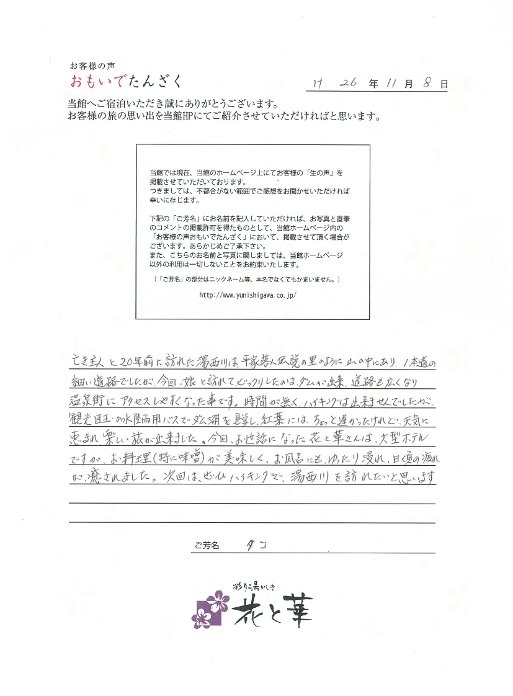 お客様の声
おもいでたんざく
H 26 年 11 月 8 日
当館へご宿泊いただき誠にありがとうございます。
お客様の旅の思い出を当館HPにてご紹介させていただければと思います。
当館では現在、当館のホームページ上にてお客様の「生の声」を
掲載させていただいております。
つきましては、不都合がない範囲でご感想をお聞かせいただければ
幸いに存じます。
下記の「ご芳名」にお名前を記入していただければ、お写真と直筆
のコメントの掲載許可を得たものとして、当館ホームページ内の
「お客様の声おもいでたんざく」において、掲載させて頂く場合が
ございます。あらかじめご了承下さい。
また、こちらのお名前と写真に関しましては、当館ホームページ
以外の利用は一切しないことをお約束いたします。
(「ご芳名」の部分はニックネーム等、本名でなくてもかまいません。)
http://www.yunishigawa.co.jp/
亡き主人と20年前に訪れた湯西川は平家落人伝説の里のように山の中にあり、1本道の
細い道路でしたが、今回、娘と訪れてビックリしたのは、ダムが出来、道路も広くなり
温泉街にアクセスしやすくなった事です。時間が無く、ハイキングは出来ませんでしたが、
観光目玉の水陸両用バスでダム湖を見学し、紅葉には、ちょっと遅かったけれど、天気に
恵まれ楽しい旅が出来ました。今回、お世話になった花と華さんは、大型ホテル
ですが、お料理(特に味噌)が美味しく、お風呂にも、ゆったり浸れ、日頃の疲れ
が、癒されました。次回は、ぜひハイキングで、湯西川を訪れたいと思います
ご芳名 タコ
彩り湯かしき
花と華